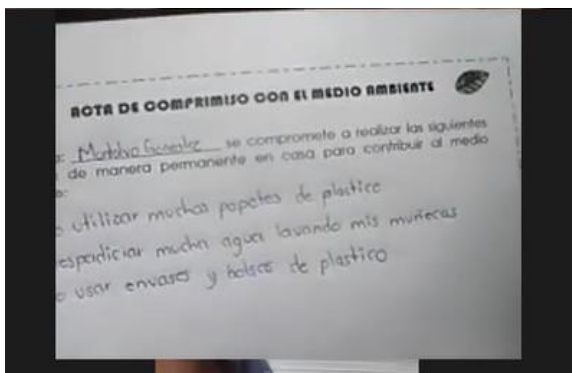 ACTA DE COMPRIMISO CON EL MEDIO AMBIENTE
se compromete a realizar las siguientes
de manera permanente en casa para contribuir al medio
utilizar muchos papeles de plastico
espediciar mucha agua lavando mis muñecas
usar envases y bolsas de plastico